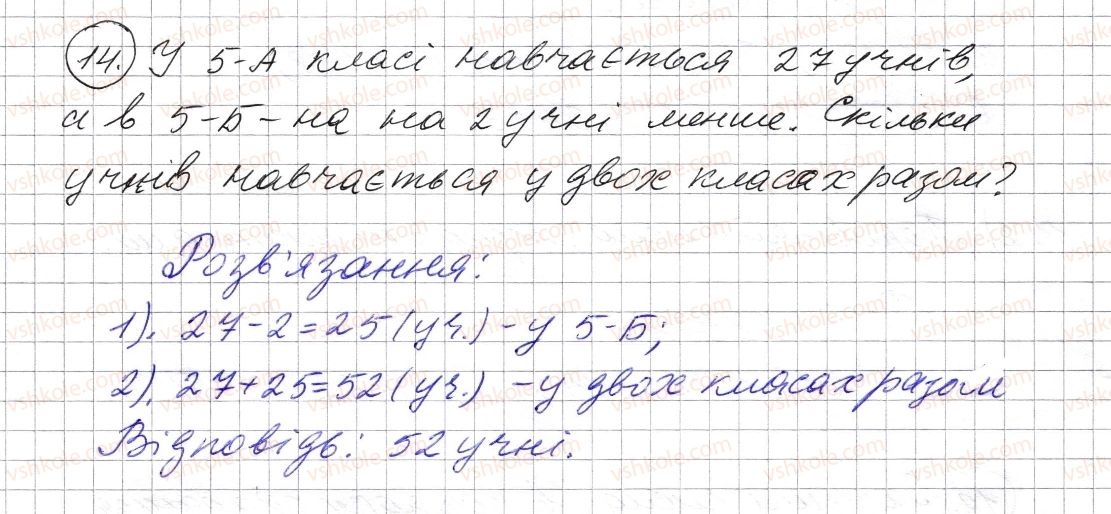 14. У 5-А класі навчається 27 учнів,
а в 5-Б - на на 2 учні менше. Скільки
учнів навчається у двох класах разом?
Розв'язання:
1). 27-2=25 (уч.) - у 5-Б;
2). 27+25=52 (уч.) - у двох класах разом
Відповідь: 52 учні.